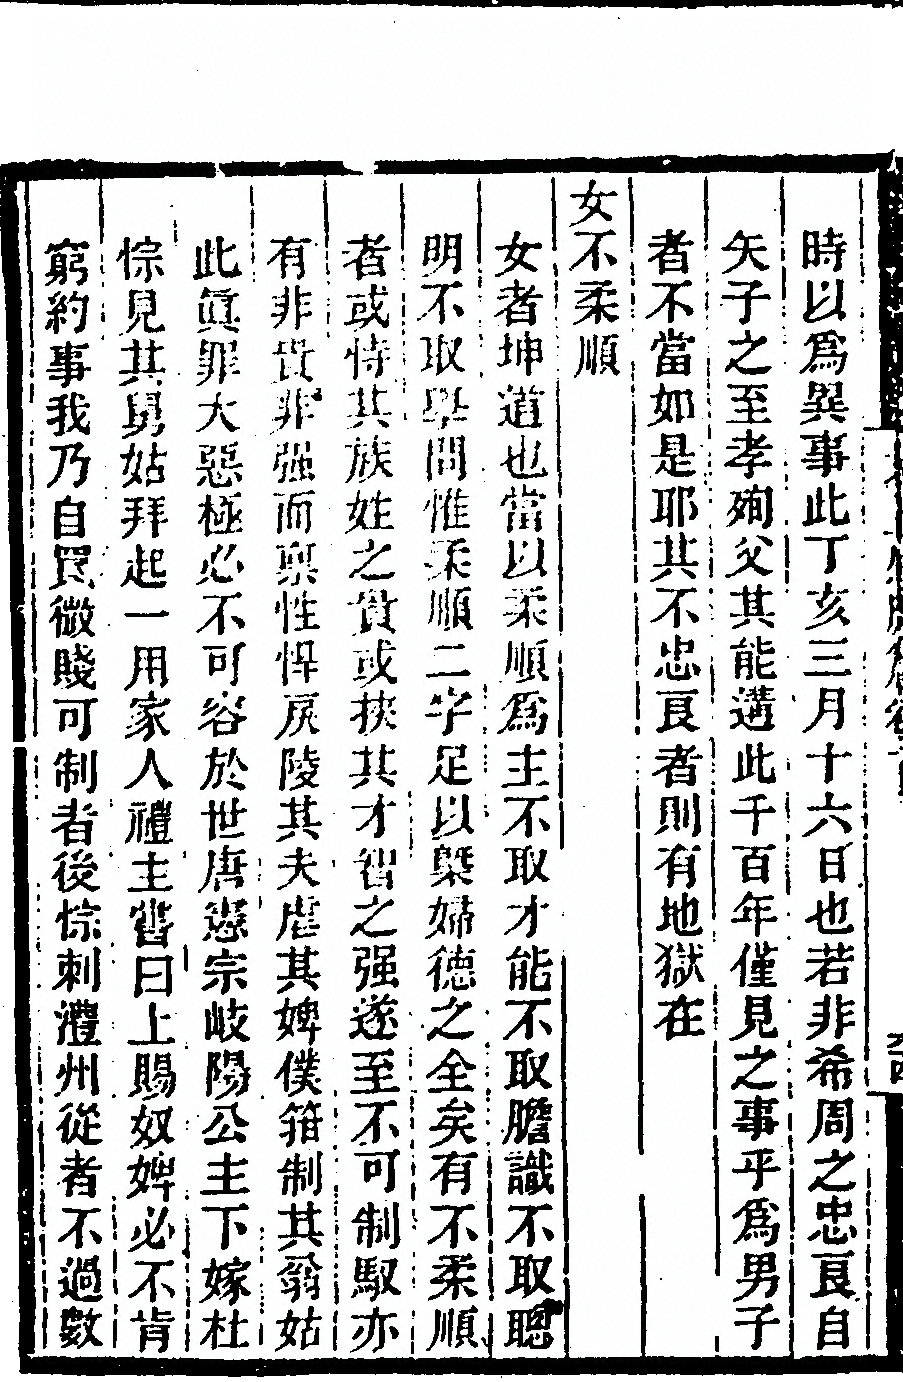 時以爲異事此丁亥三月十六日也若非希周之忠良自
矢子之至孝殉父其能遘此千百年僅見之事乎爲男子
者不當如是耶其不忠良者則有地獄在
女不柔順
女者坤道也當以柔順爲主不取才能不取膽識不取聰
明不取學問惟柔順二字足以槩婦德之全矣有不柔順
者或恃其族姓之貴或挾其才智之强遂至不可制馭亦
有非貴非强而禀性悍戾陵其夫虐其婢僕箝制其翁姑
此眞罪大惡極必不可容於世唐憲宗岐陽公主下嫁杜
悰見其舅姑拜起一用家人禮主嘗曰上賜奴婢必不肯
窮約事我乃自買微賤可制者後悰刺澧州從者不過數